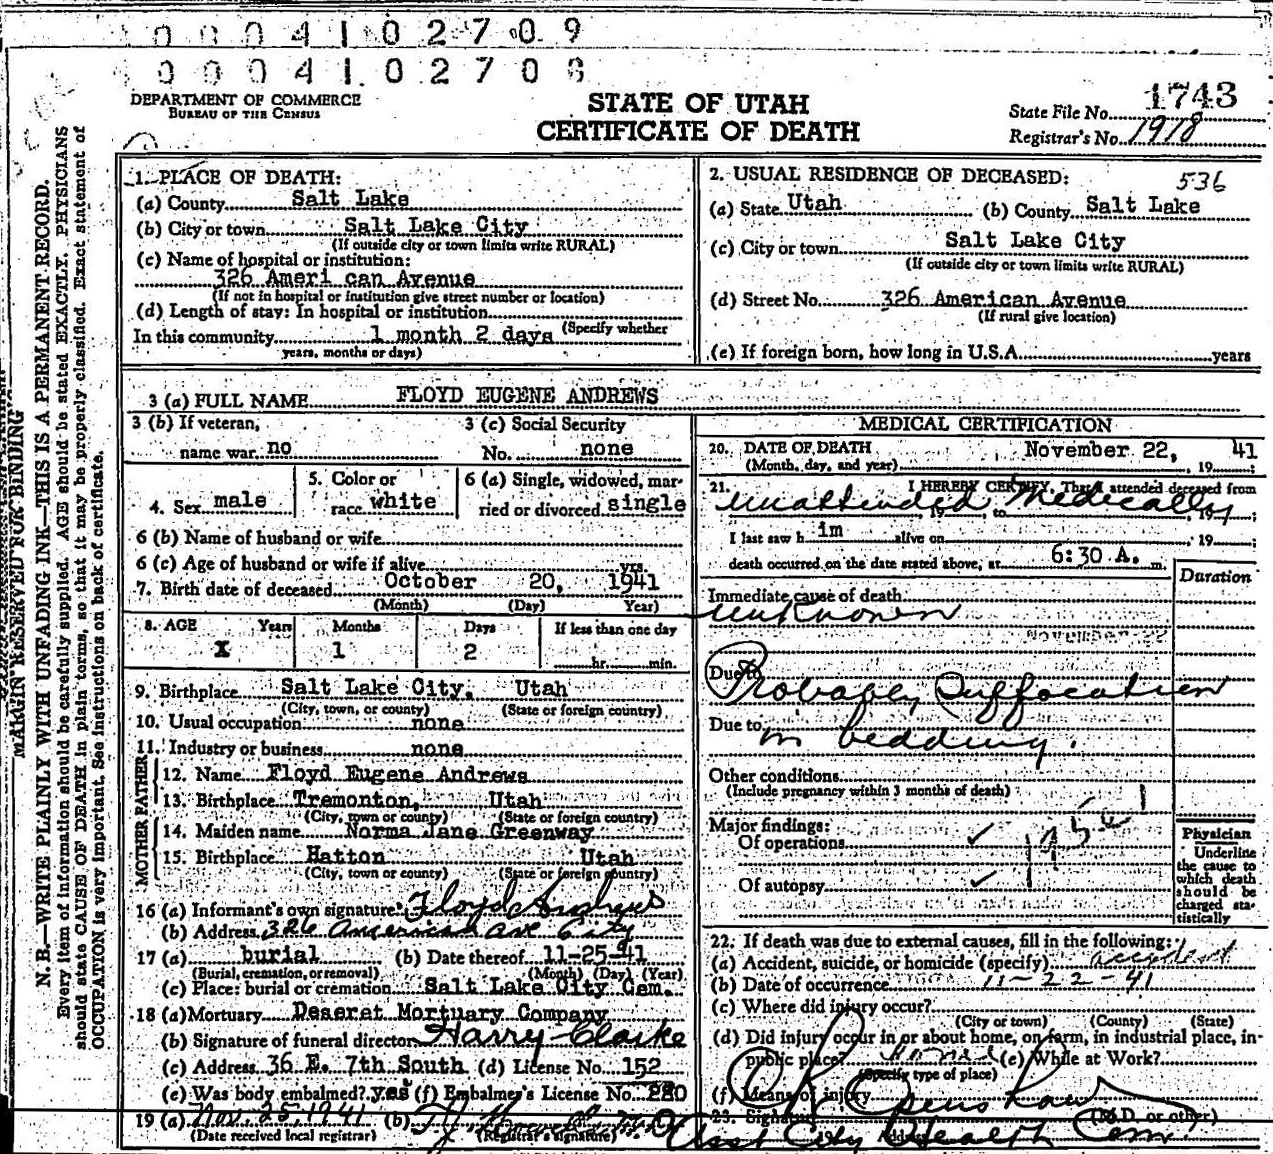 0004102709
0004102708
DEPARTMENT OF COMMERCE
BUREAU OF THE CENSUS
STATE OF UTAH
CERTIFICATE OF DEATH
State File No. 1743
Registrar's No. 1918
N. B.—WRITE PLAINLY WITH UNFADING INK—THIS IS A PERMANENT RECORD.
MARGIN RESERVED FOR BINDING
Every item of information should be carefully supplied. AGE should be stated EXACTLY. PHYSICIANS
should state CAUSE OF DEATH in plain terms, so that it may be properly classified. Exact statement of
OCCUPATION is very important. See instructions on back of certificate.
1. PLACE OF DEATH:
(a) County Salt Lake
(b) City or town Salt Lake City
(If outside city or town limits write RURAL)
(c) Name of hospital or institution:
326 Ameri can Avenue
(If not in hospital or institution give street number or location)
(d) Length of stay: In hospital or institution
In this community 1 month 2 days (Specify whether
years, months or days)
2. USUAL RESIDENCE OF DECEASED: 536
(a) State Utah (b) County Salt Lake
(c) City or town Salt Lake City
(If outside city or town limits write RURAL)
(d) Street No. 326 American Avenue
(If rural give location)
(e) If foreign born, how long in U.S.A. years
3 (a) FULL NAME FLOYD EUGENE ANDREWS
3 (b) If veteran, name war no
3 (c) Social Security No. none
4. Sex male
5. Color or race white
6 (a) Single, widowed, married or divorced single
6 (b) Name of husband or wife
6 (c) Age of husband or wife if alive yrs.
7. Birth date of deceased October 20, 1941
(Month) (Day) Year)
8. AGE Years Months Days If less than one day
X 1 2 hr. min.
9. Birthplace Salt Lake City, Utah
(City, town, or county) (State or foreign country)
10. Usual occupation none
11. Industry or business none
FATHER
12. Name Floyd Eugene Andrews
13. Birthplace Tremonton, Utah
(City, town or county) (State or foreign country)
MOTHER
14. Maiden name Norma Jane Greenway
15. Birthplace Hatton Utah
(City, town or county) (State or foreign country)
16 (a) Informant's own signature: Floyd Andrews
(b) Address 326 American Ave City
17 (a) burial (b) Date thereof 11-25-41
(Burial, cremation, or removal) (Month) (Day) (Year)
(c) Place: burial or cremation Salt Lake City Cem.
18 (a) Mortuary Deseret Mortuary Company
(b) Signature of funeral director Harry Clarke
(c) Address 36 E. 7th South (d) License No. 152
(e) Was body embalmed? yes (f) Embalmer's License No. 280
19 (a) Nov. 25, 1941 (b)
(Date received local registrar) (Registrar's signature)
MEDICAL CERTIFICATION
20. DATE OF DEATH November 22, 41
(Month, day, and year) , 19 ;
21. I HEREBY CERTIFY, That I attended deceased from
unattended Medically , 19 , to , 19 ;
I last saw h im alive on , 19 ;
death occurred on the date stated above, at 6:30 A. m.
Duration
Immediate cause of death
unknown
November 22
Due to Probably Suffocation
Due to in bedding.
Other conditions
(Include pregnancy within 3 months of death)
Major findings:
Of operations ✓
Of autopsy ✓
Physician
Underline
the cause to
which death
should be
charged sta-
tistically
22. If death was due to external causes, fill in the following:
(a) Accident, suicide, or homicide (specify) accident
(b) Date of occurrence 11-22-41
(c) Where did injury occur?
(City or town) (County) (State)
(d) Did injury occur in or about home, on farm, in industrial place, in
public place? home (e) While at Work?
(Specify type of place)
(f) Means of injury
23. Signature Openshaw (M.D. or other)
Address Asst City Health Com.